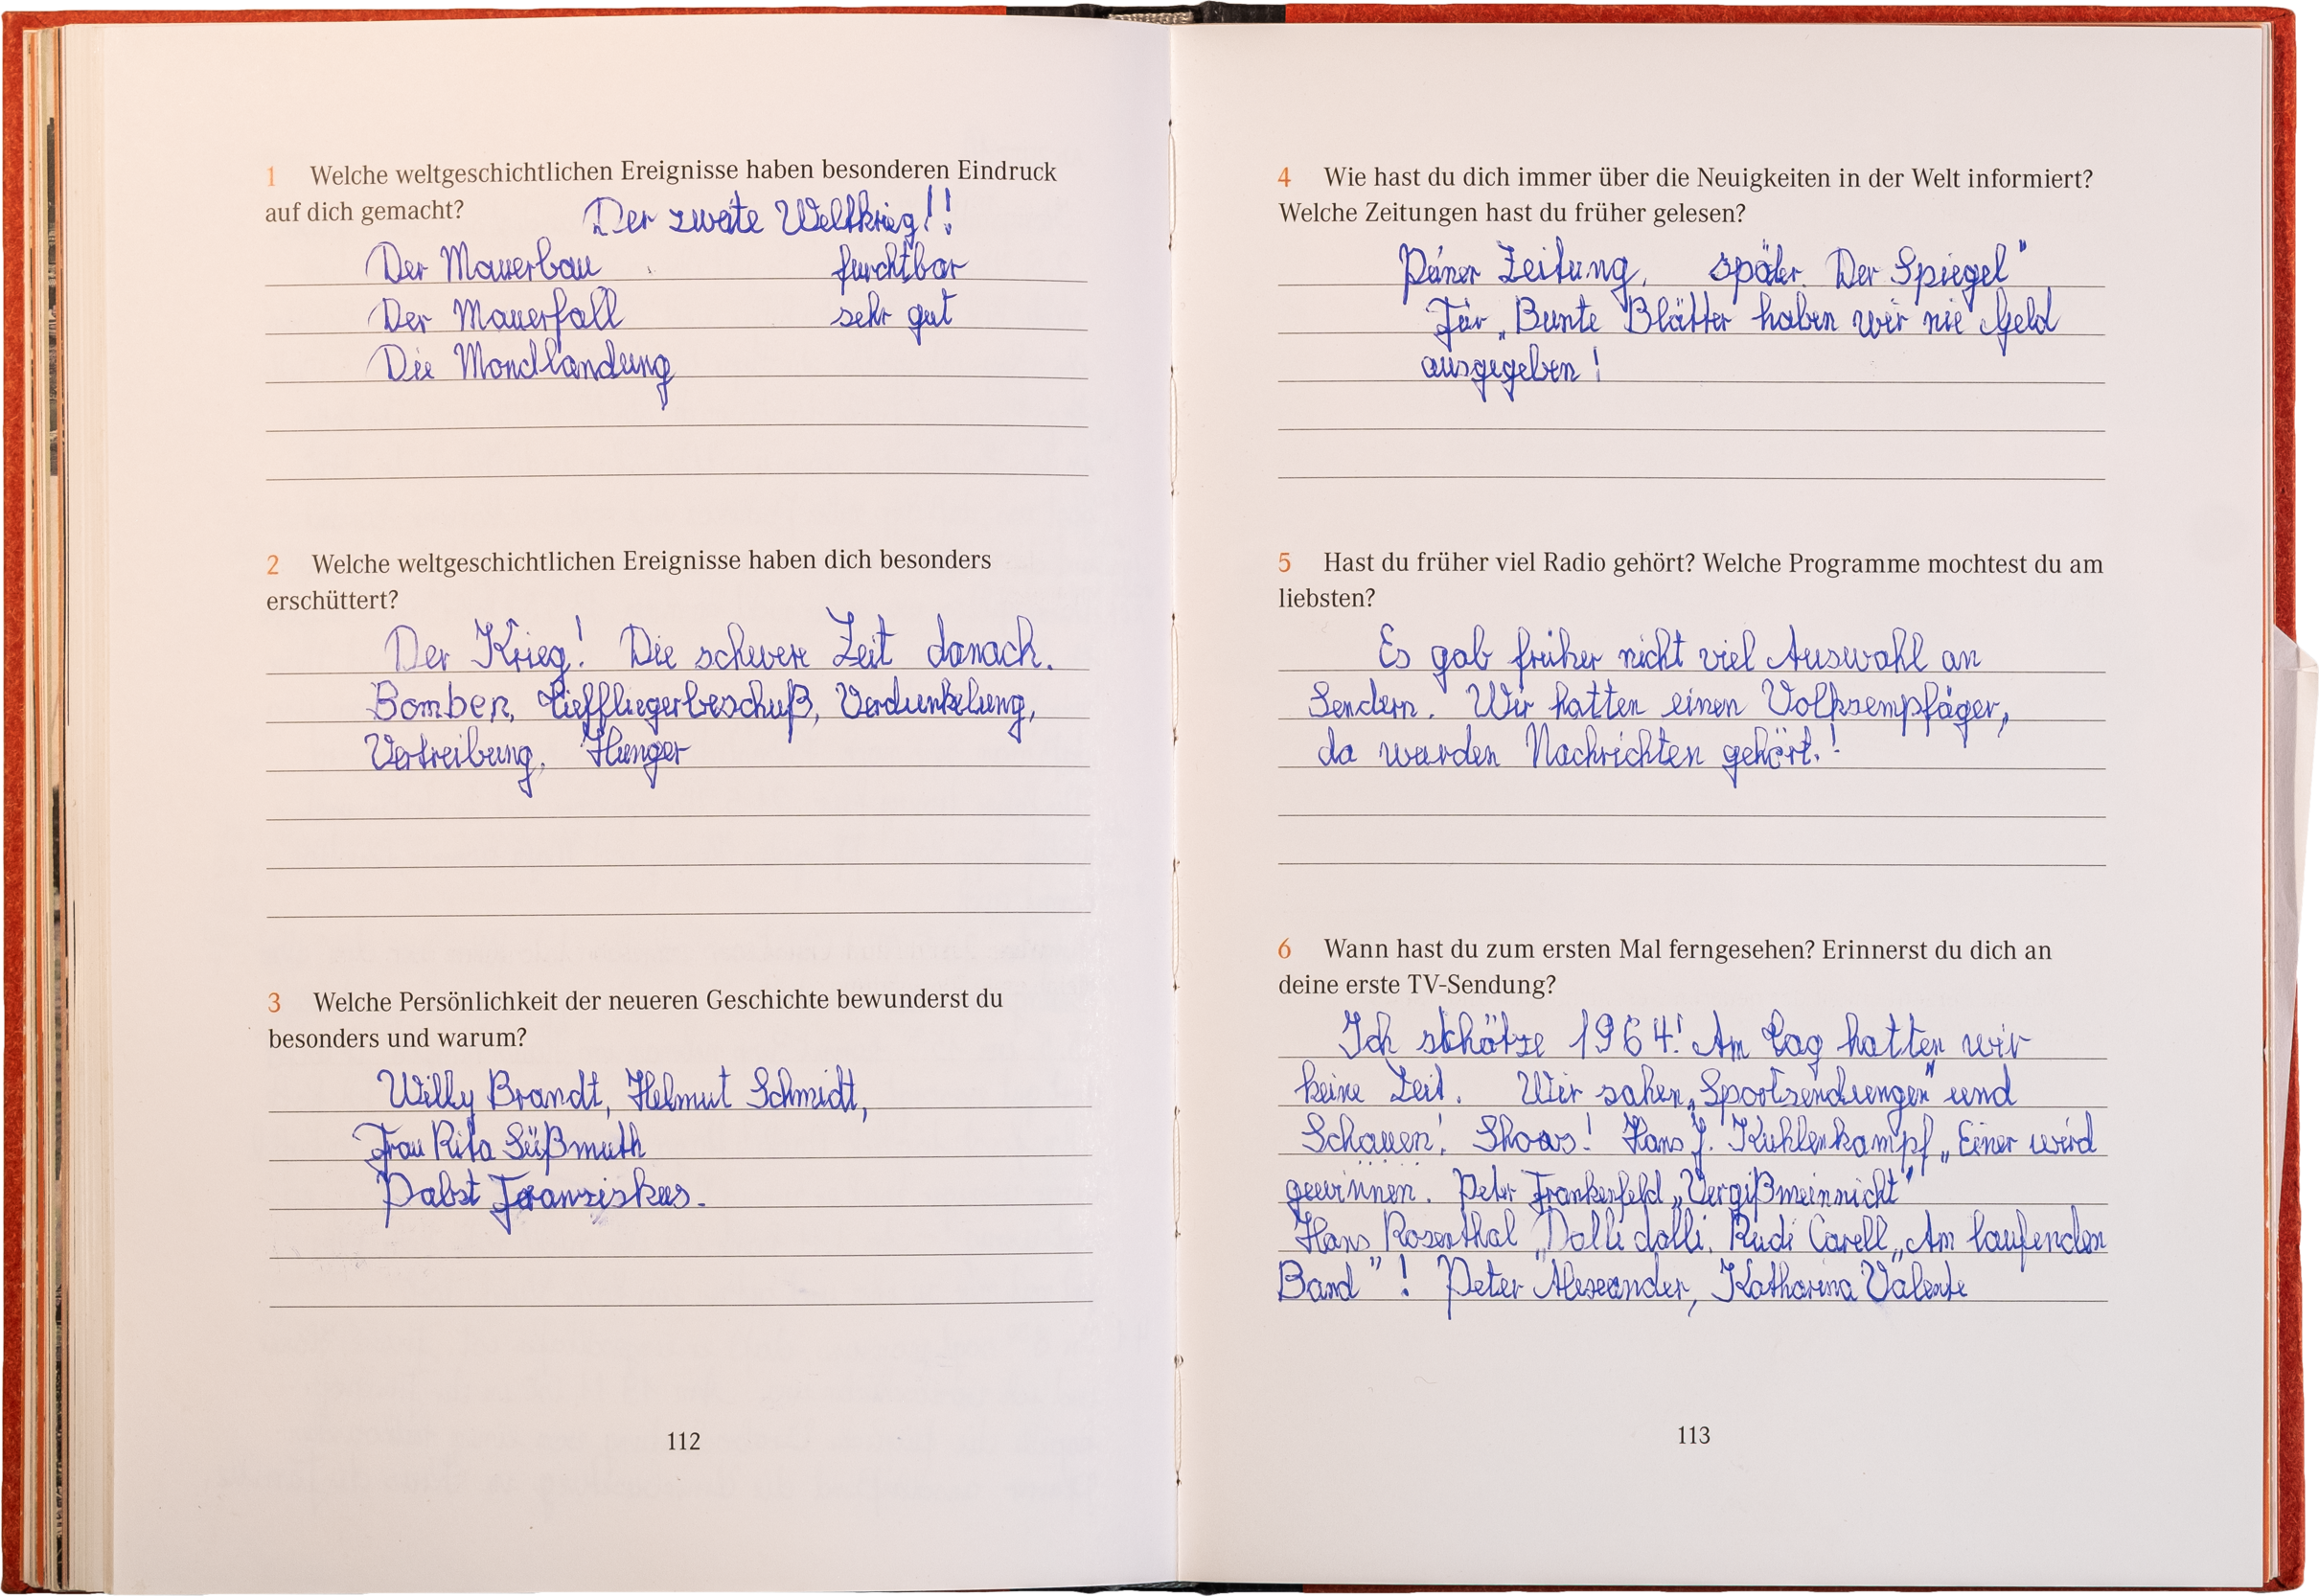 1 Welche weltgeschichtlichen Ereignisse haben besonderen Eindruck
auf dich gemacht? Der zweite Weltkrieg!!
Der Mauerbau furchtbar
Der Mauerfall sehr gut
Die Mondlandung
2 Welche weltgeschichtlichen Ereignisse haben dich besonders
erschüttert?
Der Krieg! Die schwere Zeit danach.
Bomben, Tieffliegerbeschuß, Verdunkelung,
Vertreibung, Hunger
3 Welche Persönlichkeit der neueren Geschichte bewunderst du
besonders und warum?
Willy Brandt, Helmut Schmidt,
Frau Rita Süßmuth
Pabst Franziskus.
112
4 Wie hast du dich immer über die Neuigkeiten in der Welt informiert?
Welche Zeitungen hast du früher gelesen?
Peiner Zeitung, später. Der Spiegel"
Für „Bunte Blätter haben wir nie Geld
ausgegeben!
5 Hast du früher viel Radio gehört? Welche Programme mochtest du am
liebsten?
Es gab früher nicht viel Auswahl an
Sendern. Wir hatten einen Volksempfäger,
da wurden Nachrichten gehört.!
6 Wann hast du zum ersten Mal ferngesehen? Erinnerst du dich an
deine erste TV-Sendung?
Ich schätze 1964! Am Tag hatten wir
keine Zeit. Wir sahen „Sportsendungen" und
Schauen! Shows! Hans J. Kuhlenkampf „Einer wird
gewinnen. Peter Frankenfeld „Vergißmeinnicht"
Hans Rosenthal „Dalli dalli, Rudi Carell „Am laufenden
Band"! Peter Alexander, Katharina Valente
113